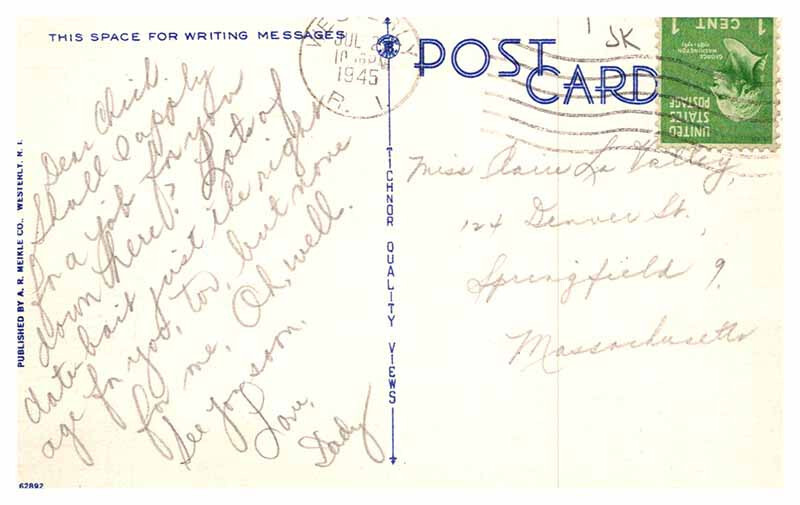 THIS SPACE FOR WRITING MESSAGES
Dear Chick.
Shall I apply
for a job for you
down here? Lots of
date-bait just the right
age for you, too, but none
for me. Oh, well.
See you soon.
Love,
Dody
PUBLISHED BY A. R. MEIKLE CO., WESTERLY, R. I.
62892
TICHNOR QUALITY VIEWS
WESTERLY
JUL
1945
R. I.
POST CARD
JK
1 CENT 1
GEORGE WASHINGTON
UNITED
STATES
POSTAGE
Miss Claire La Valley,
124 Denver St.
Springfield 9,
Massachusetts